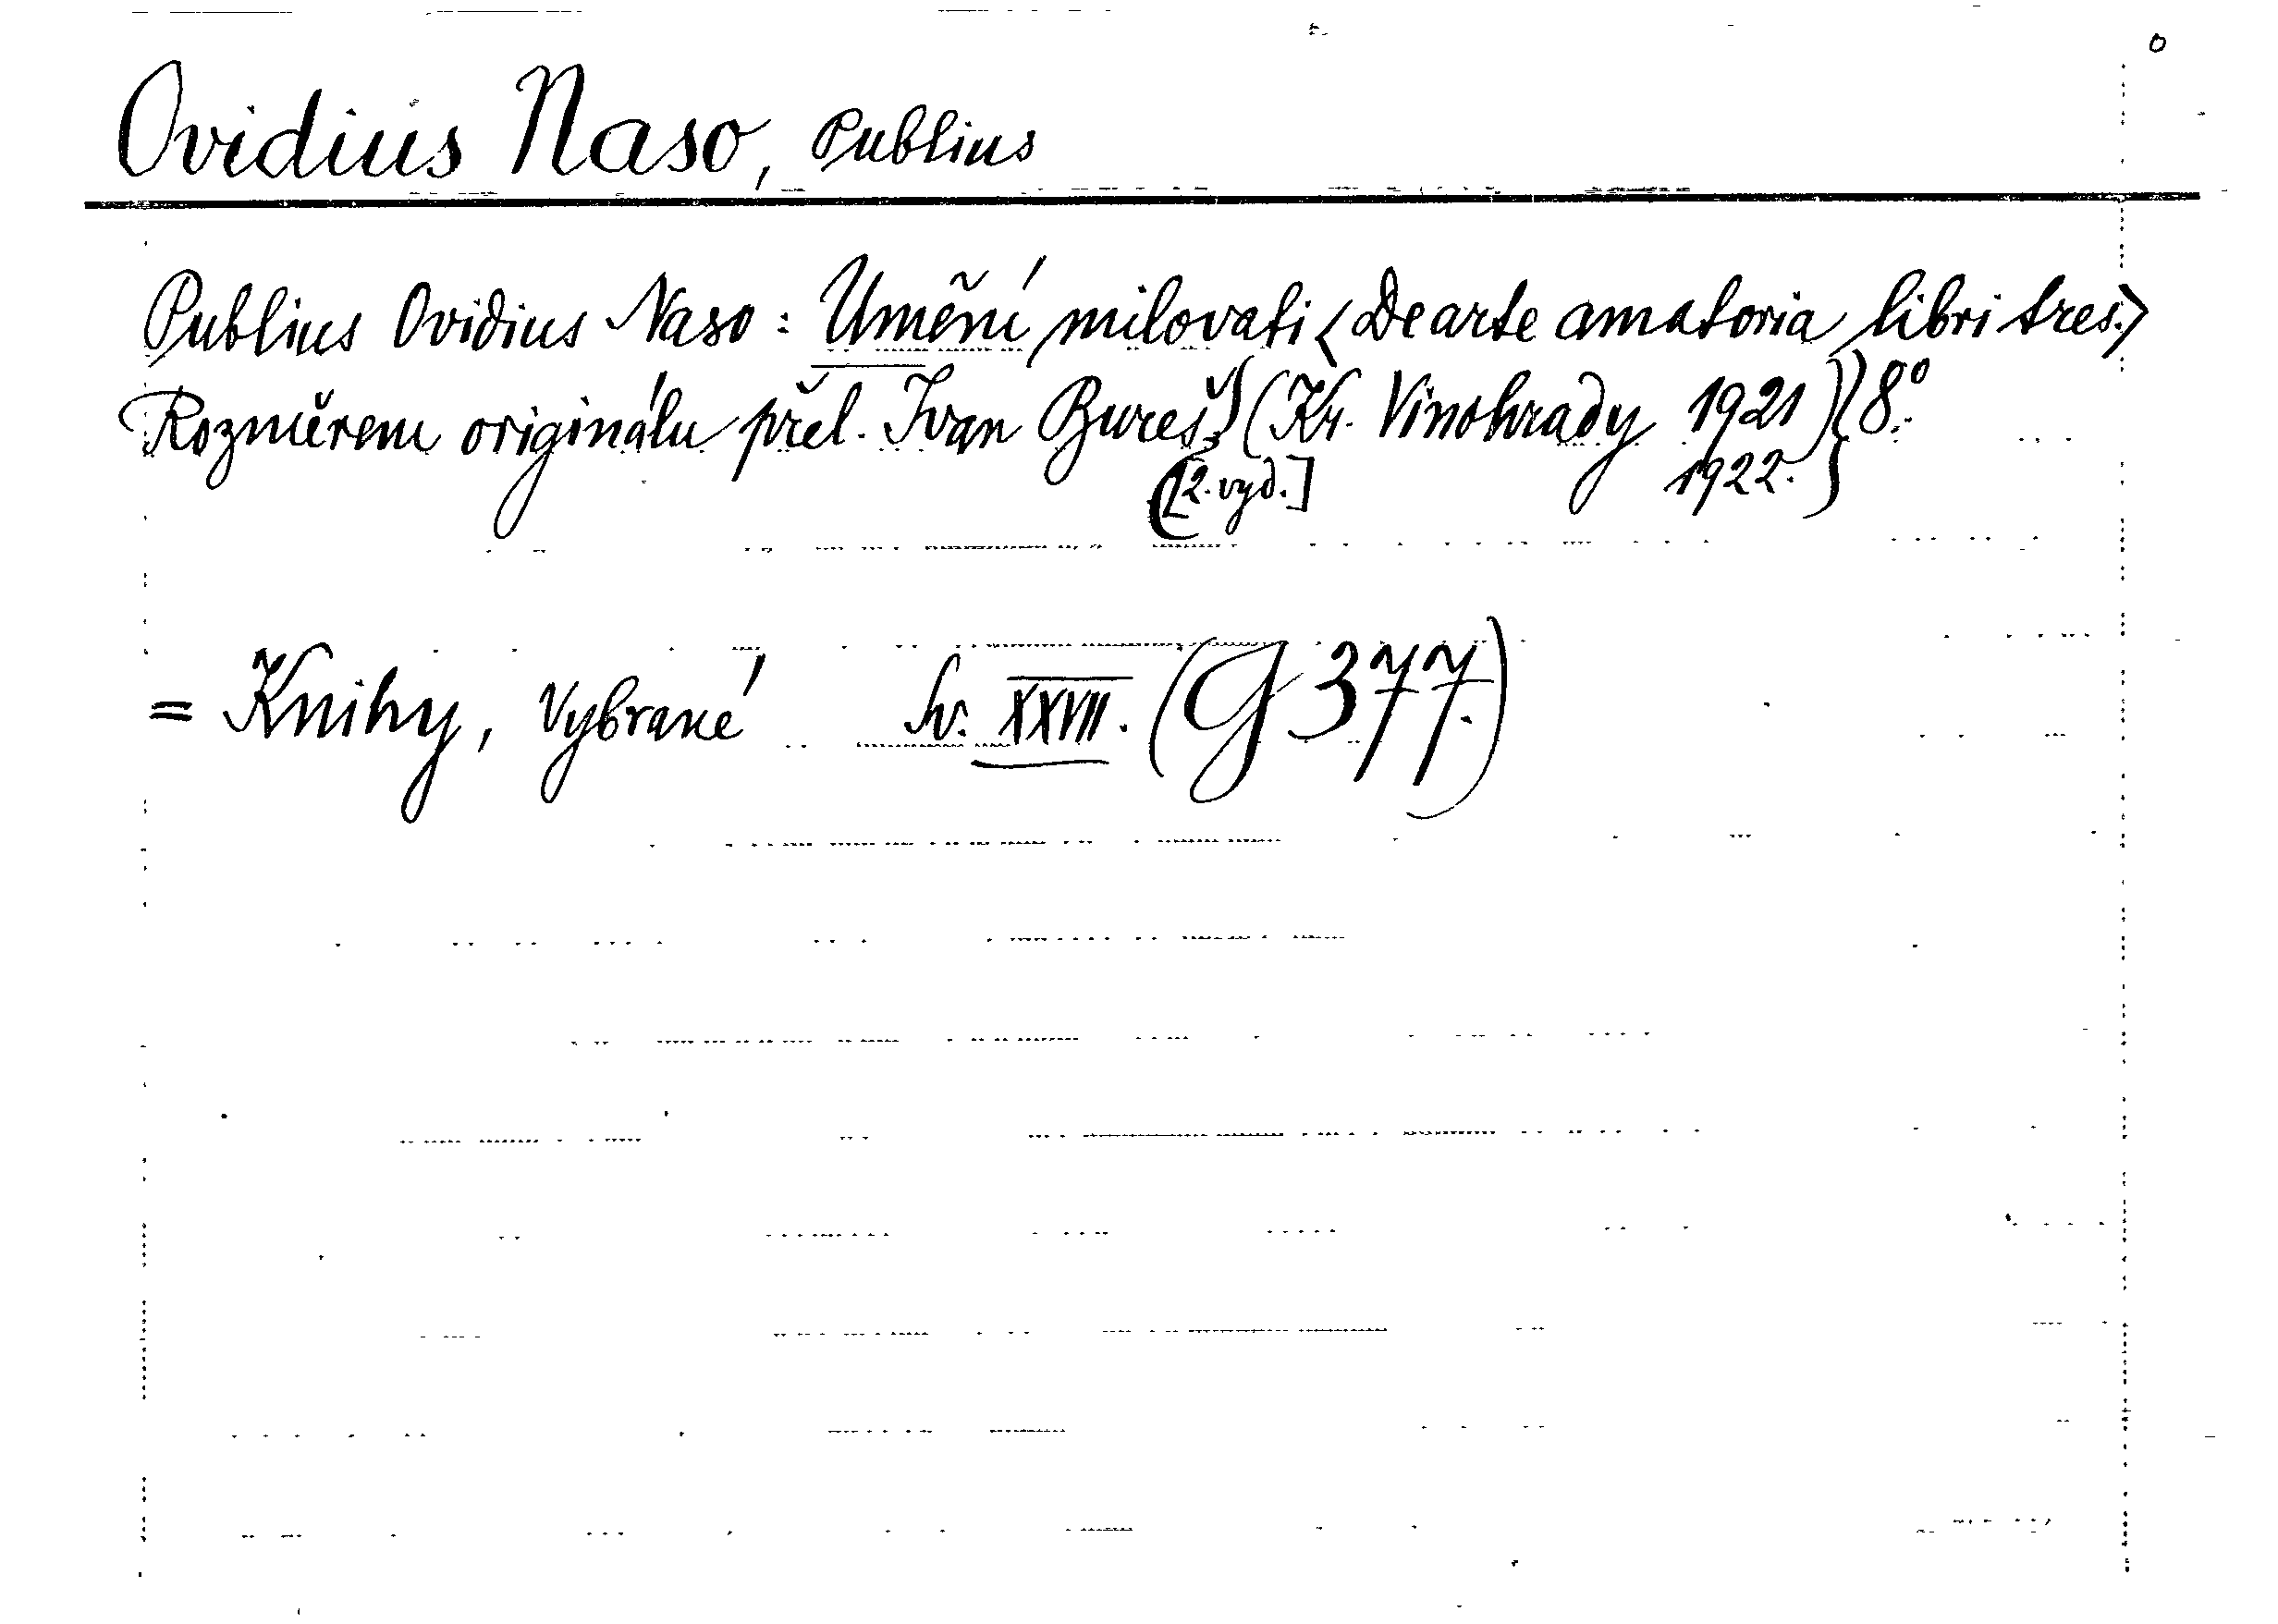 Ovidius Naso, Publius
Publius Ovidius Naso: Umění milovati <De arte amatoria libri tres.>
Rozměrem originálu přel. Ivan Bureš. (Kr. Vinohrady 1921) 8°.
[2. vyd.] 1922.
= Knihy, Vybrané Sv. XXVII. (G 377.)